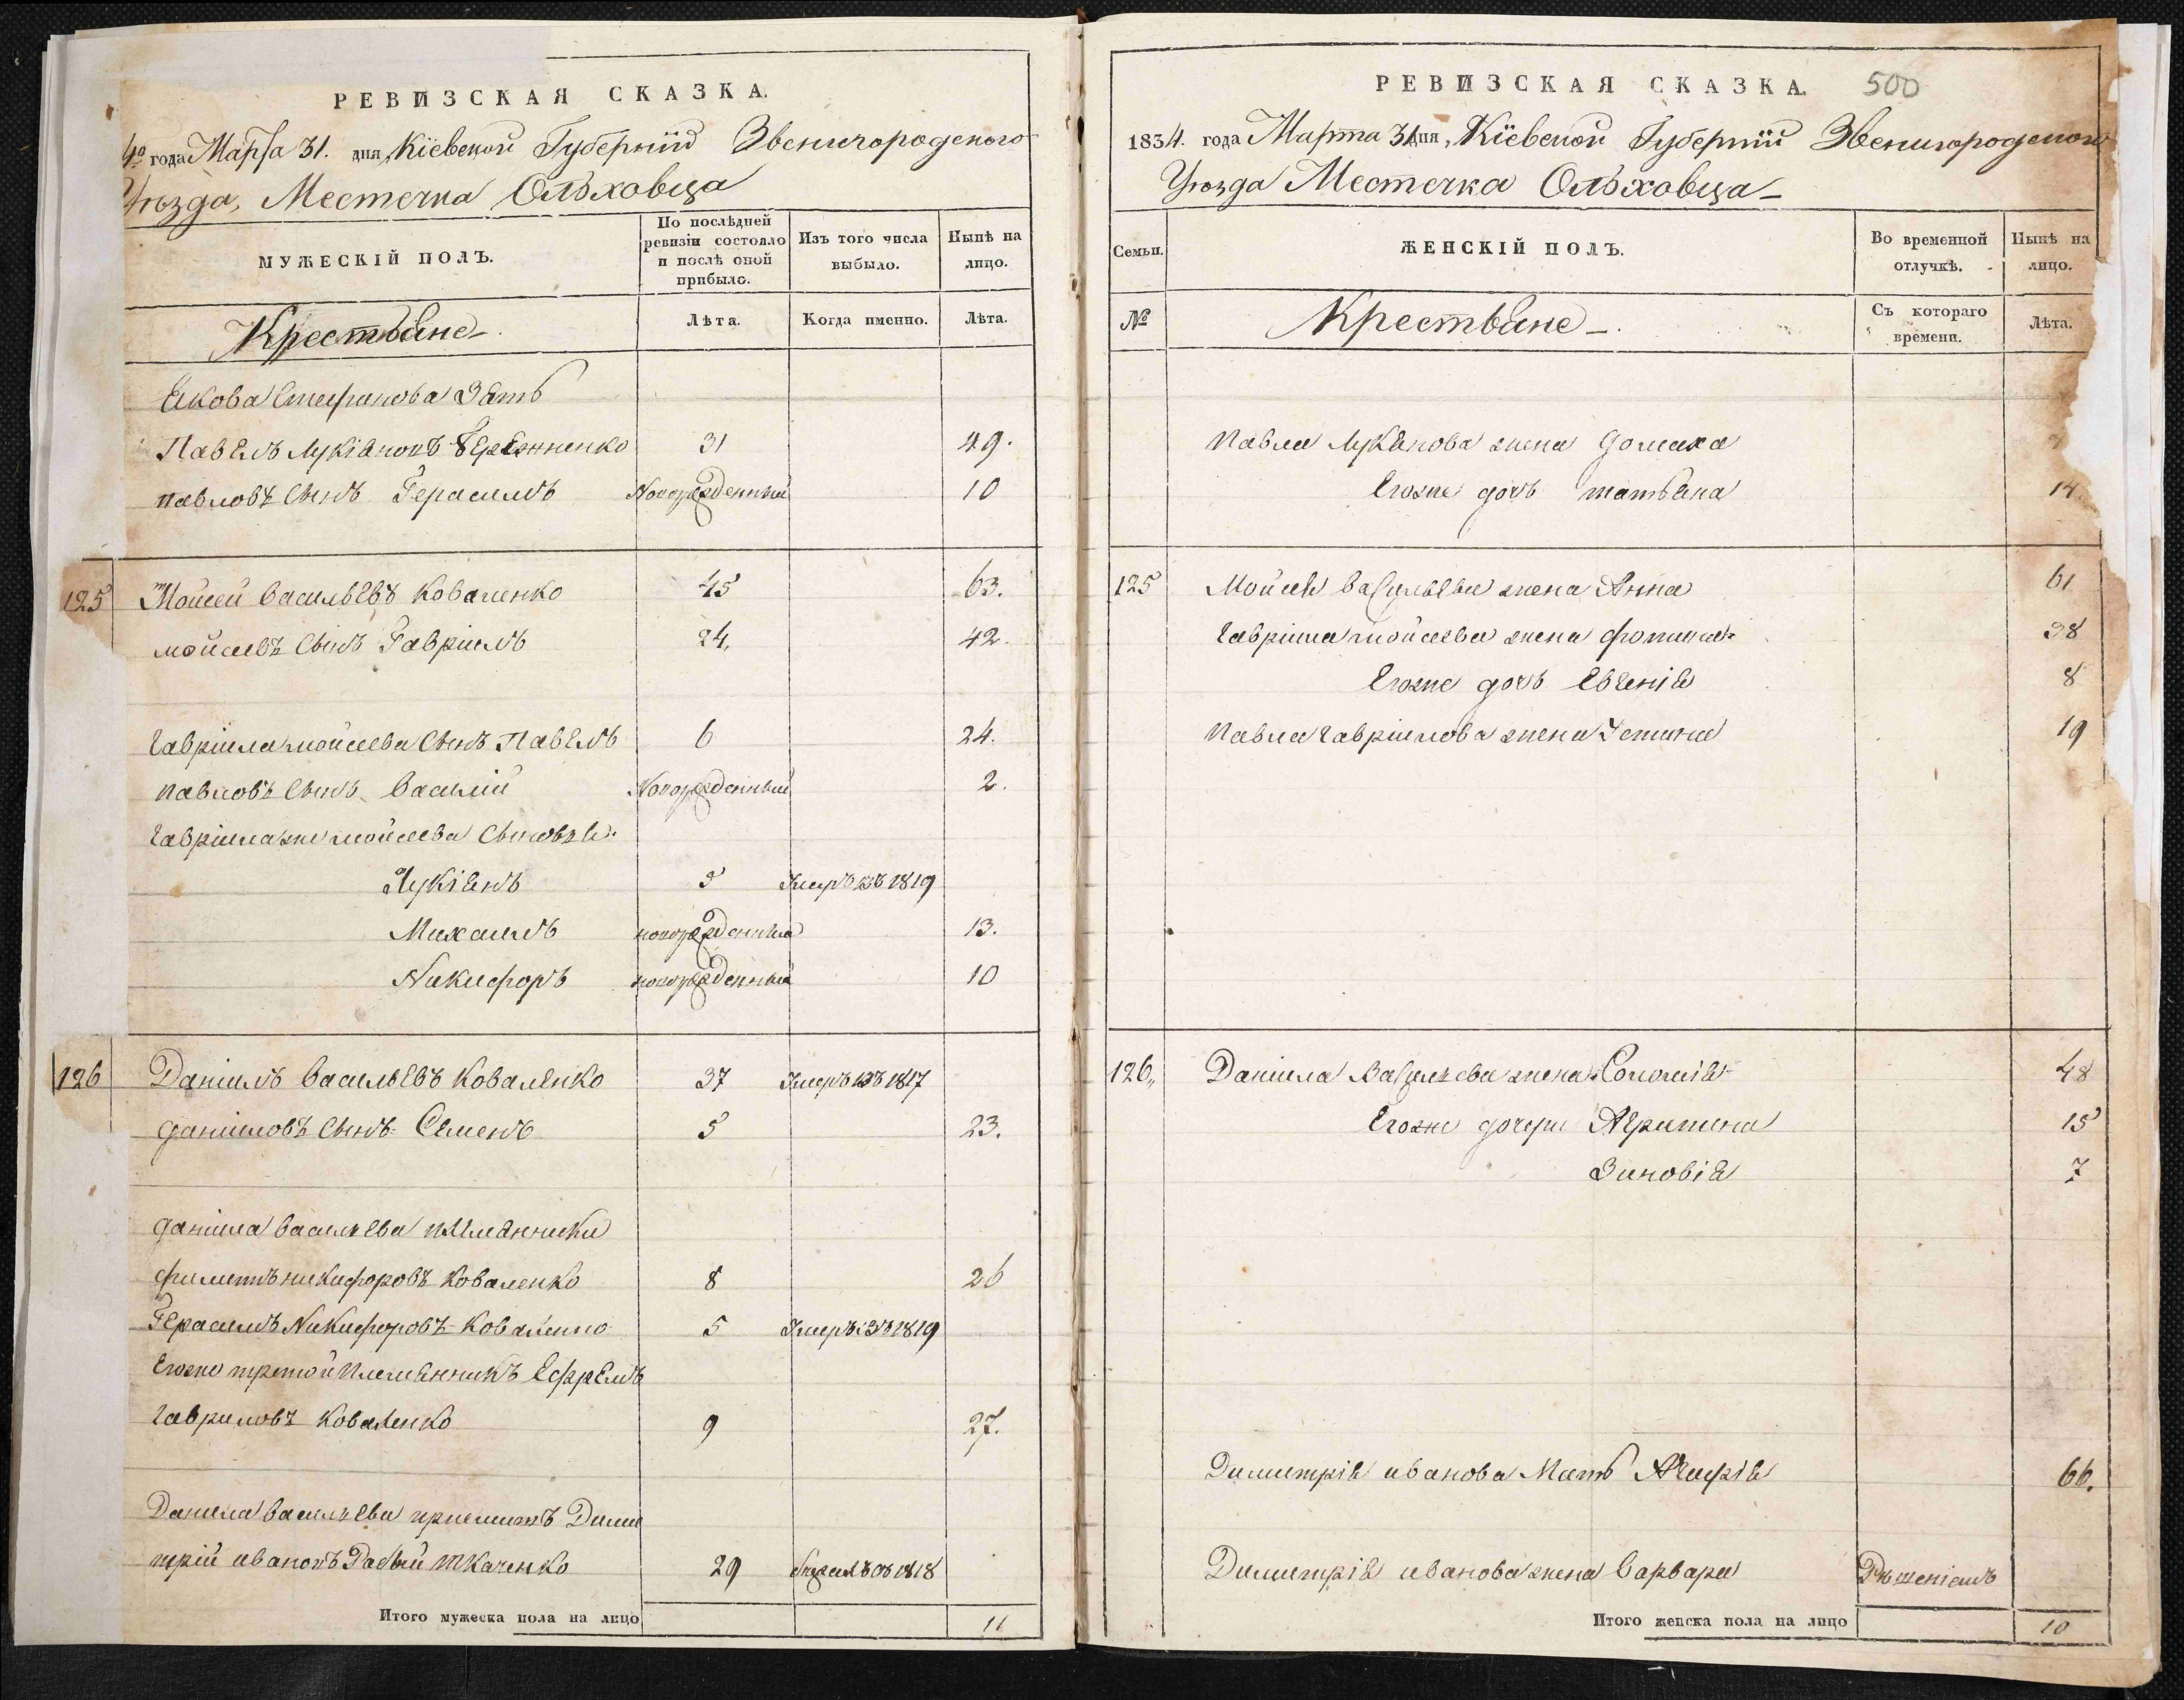 РЕВИЗСКАЯ СКАЗКА.
4го года Марта 31. дня, Кіевской Губерніи Звенигородского
Уѣзда, Местечка Ольховца
МУЖЕСКІЙ ПОЛЪ.
По послѣдней ревизіи состояло и послѣ оной прибыло.
Изъ того числа выбыло.
Нынѣ на лицо.
Крестьяне
Лѣта.
Когда именно.
Лѣта.
Якова Стефанова Зять
Павелъ Лукіановъ 31 49.
Павловъ Сынъ Герасимъ Новорожденный 10
125 Мойсей Васильевъ Коваленко 45 63.
мойсевъ Сынъ Гавріилъ 24, 42.
Гавріила мойсеева Сынъ Павелъ 6 24.
Павловъ Сынъ Василій Новорожденный 2.
Гавріила же мойсеева Сыновья
Лукіянъ 3 Умеръ въ 1819
Михаилъ новорожденный 13.
Никифоръ новорожденный 10
126 Даніилъ Васильевъ Коваленко 37 Умеръ въ 1817
даніиловъ Сынъ Семенъ 5 23.
даніила Васильева племянники
филиппъ никифоровъ Коваленко 8 26
Герасимъ Никифоровъ Коваленко 5 Умеръ въ 1819
Егоже третой Племянникъ Ефремъ
Гавриловъ Коваленко 9 27.
Данила Васильева Дими
трій ивановъ Ткаченко 29 въ 1818
Итого мужеска пола на лицо 11
РЕВИЗСКАЯ СКАЗКА. 500
1834. года Марта 31 дня, Кіевской Губерніи Звенигородского
Уѣзда Местечка Ольховца
Семьи.
ЖЕНСКІЙ ПОЛЪ.
Во временной отлучкѣ.
Нынѣ на лицо.
№
Крестьяне
Съ котораго времени.
Лѣта.
Павла Лукянова жена домаха
Егоже дочь татьяна 14
125 Мойсея Васильева жена Анна 61
Гавріила мойсеева жена 38
Егоже дочь Евгенія 8
Павла Гавріилова жена Устина 19
126, Даніила Васильева жена Соломія 48
Егоже дочери Агрипина 15
Зиновія 7
Димитрія иванова Мать Агафія 66.
Димитрія иванова жена Варвара
Итого женска пола на лицо 10